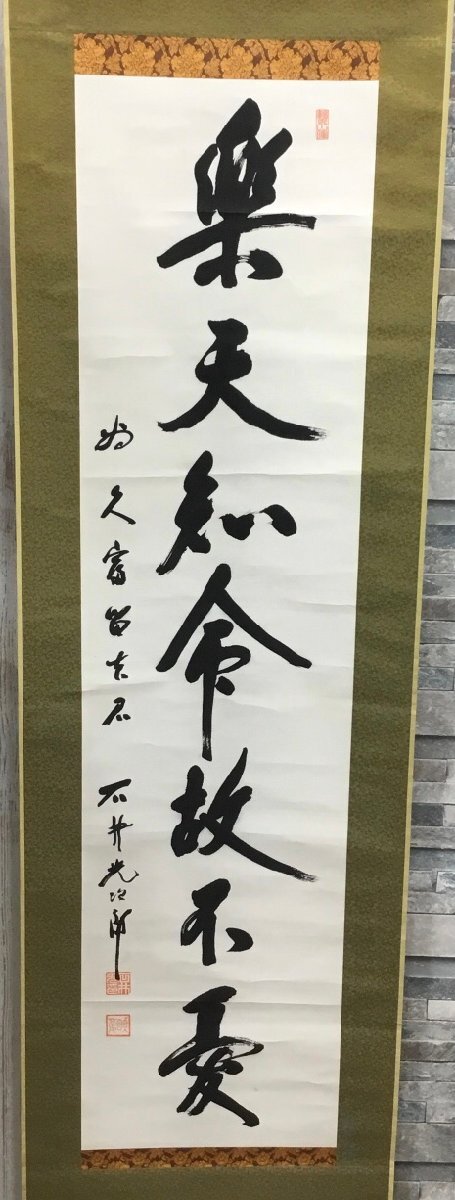 樂天知命故不憂
為久富留吉君
石井光次郎